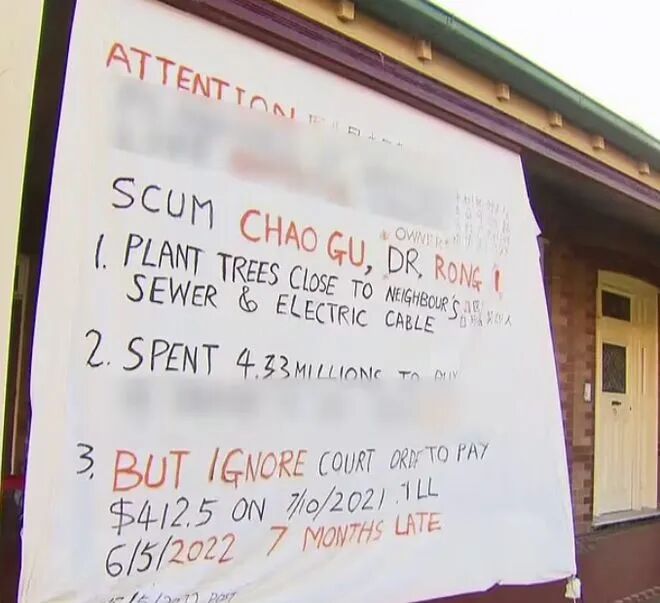 ATTENTION
SCUM CHAO GU, DR. RONG
OWNER
1. PLANT TREES CLOSE TO NEIGHBOUR'S
SEWER & ELECTRIC CABLE
2. SPENT 4.33 MILLIONS TO BUY
3. BUT IGNORE COURT ORDE TO PAY
$412.5 ON 7/10/2021
6/5/2022 7 MONTHS LATE